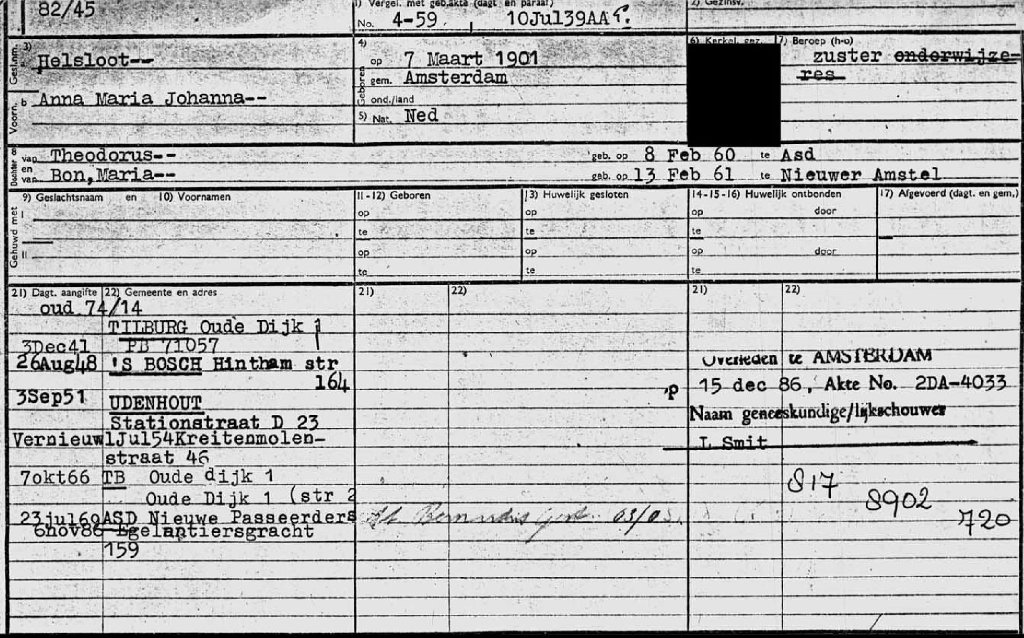 82/45
1) Vergel. met geb.akte (dagt. en paraaf)
No. 4-59 , 10Jul39AA
2) Gezinsv.
Gesl.nm. 3) Helsloot--
Voorn. b Anna Maria Johanna--
4)
Geboren op 7 Maart 1901
gem. Amsterdam
ond./land
5) Nat. Ned
6) Kerkel. gez.
7) Beroep (h-o)
zuster onderwijze-
res
Dochter van Theodorus-- geb. op 8 Feb 60 te Asd
en van Bon,Maria-- geb. op 13 Feb 61 te Nieuwer Amstel
Gehuwd met
9) Geslachtsnaam en 10) Voornamen
11-12) Geboren
13) Huwelijk gesloten
14-15-16) Huwelijk ontbonden
17) Afgevoerd (dagt. en gem.)
I op op op door
te te te
II op op op door
te te te
21) Dagt. aangifte 22) Gemeente en adres 21) 22) 21) 22)
oud 74/14
TILBURG Oude Dijk 1
3Dec41 PB 71057
26Aug48 'S BOSCH Hintham str
164
3Sep51 UDENHOUT
Stationstraat D 23
Vernieuw1Jul54Kreitenmolen-
straat 46
7okt66 TB Oude dijk 1
Oude Dijk 1 (str 2
23jul69 ASD Nieuwe Passeerders
6nov86 Egelantiersgracht
159
Overleden te AMSTERDAM
15 dec 86, Akte No. 2DA-4033
Naam geneeskundige/lijkschouwer
L Smit
817
8902
720